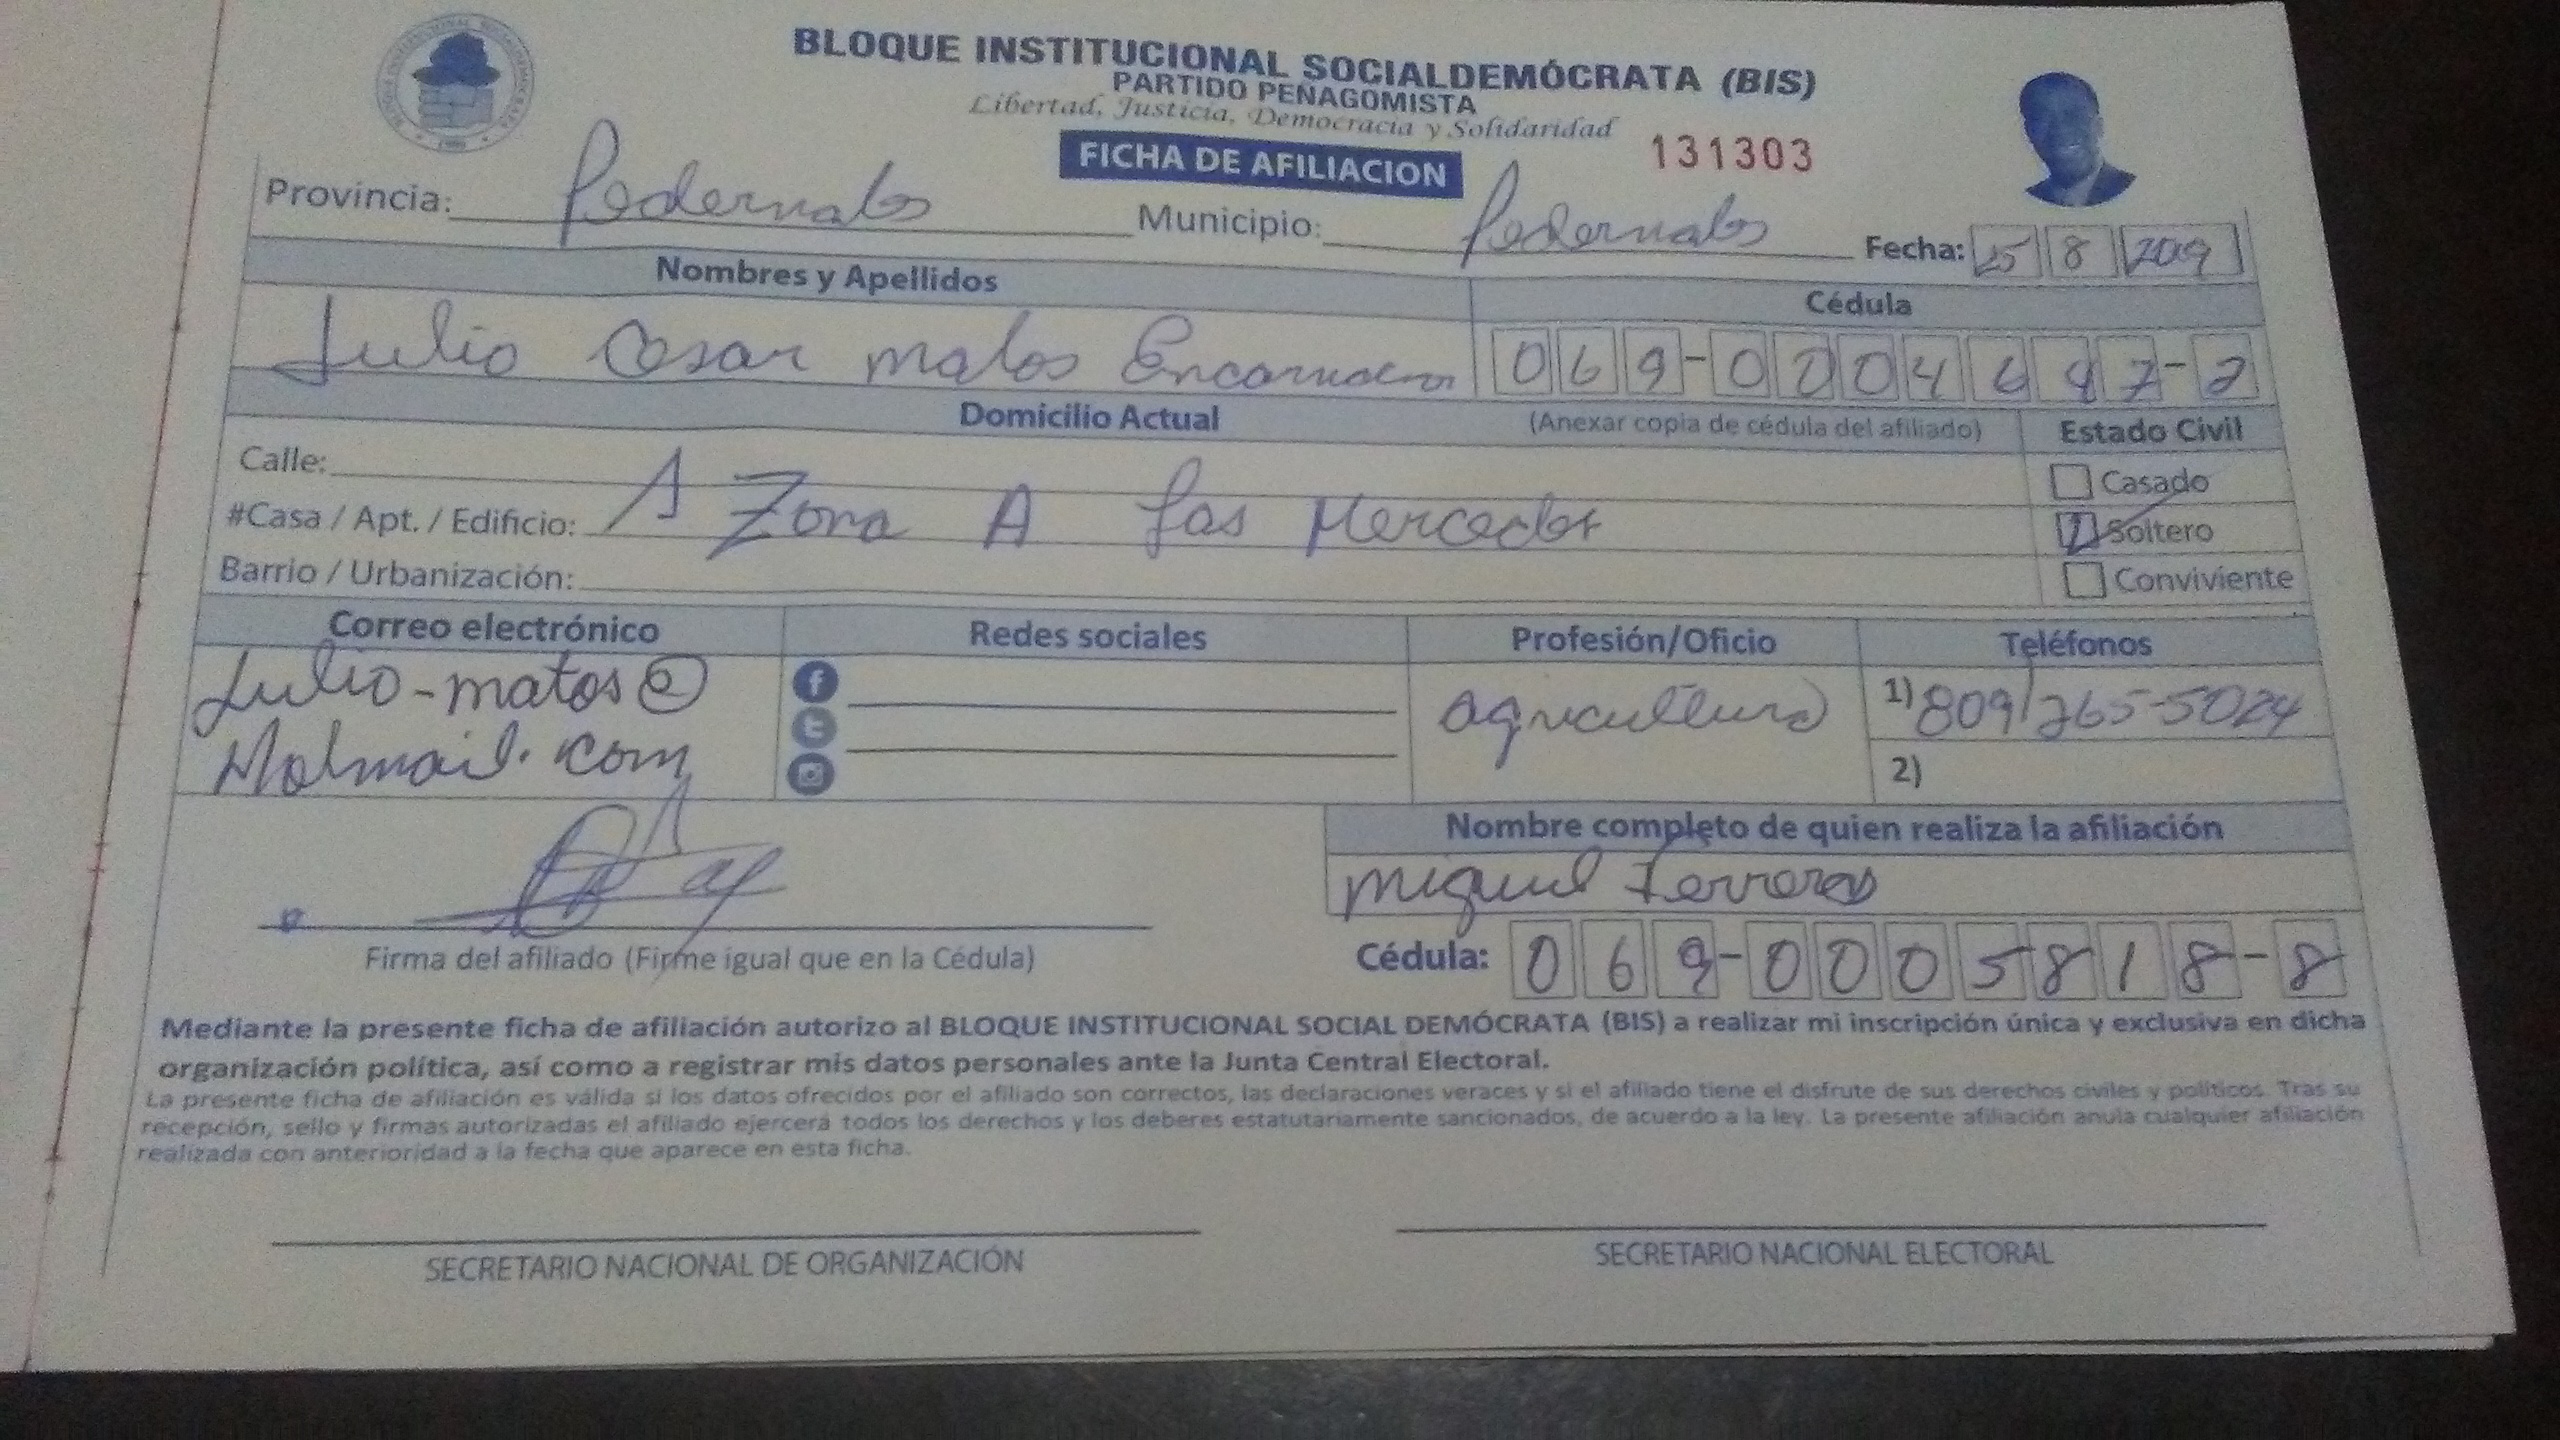 BLOQUE INSTITUCIONAL SOCIALDEMÓCRATA (BIS)
PARTIDO PEÑAGOMISTA
Libertad, Justicia, Democracia y Solidaridad
FICHA DE AFILIACION 131303
Provincia: Pedernales Municipio: Pedernales Fecha: 25 8 2019
Nombres y Apellidos Cédula
Julio Cesar matos Encarnacion 069-0004647-2
Domicilio Actual (Anexar copia de cédula del afiliado) Estado Civil
Calle: Casado
#Casa / Apt. / Edificio: A Zona A Las Mercedes Soltero
Barrio / Urbanización: Conviviente
Correo electrónico Redes sociales Profesión/Oficio Teléfonos
Julio-matos@ agricultura 1) 809/265-5024
Hotmail.com 2)
Nombre completo de quien realiza la afiliación
miguel ferreras
Firma del afiliado (Firme igual que en la Cédula) Cédula: 069-0005818-8
Mediante la presente ficha de afiliación autorizo al BLOQUE INSTITUCIONAL SOCIAL DEMÓCRATA (BIS) a realizar mi inscripción única y exclusiva en dicha
organización política, así como a registrar mis datos personales ante la Junta Central Electoral.
La presente ficha de afiliación es válida si los datos ofrecidos por el afiliado son correctos, las declaraciones veraces y si el afiliado tiene el disfrute de sus derechos civiles y políticos. Tras su
recepción, sello y firmas autorizadas el afiliado ejercerá todos los derechos y los deberes estatutariamente sancionados, de acuerdo a la ley. La presente afiliación anula cualquier afiliación
realizada con anterioridad a la fecha que aparece en esta ficha.
SECRETARIO NACIONAL DE ORGANIZACIÓN SECRETARIO NACIONAL ELECTORAL